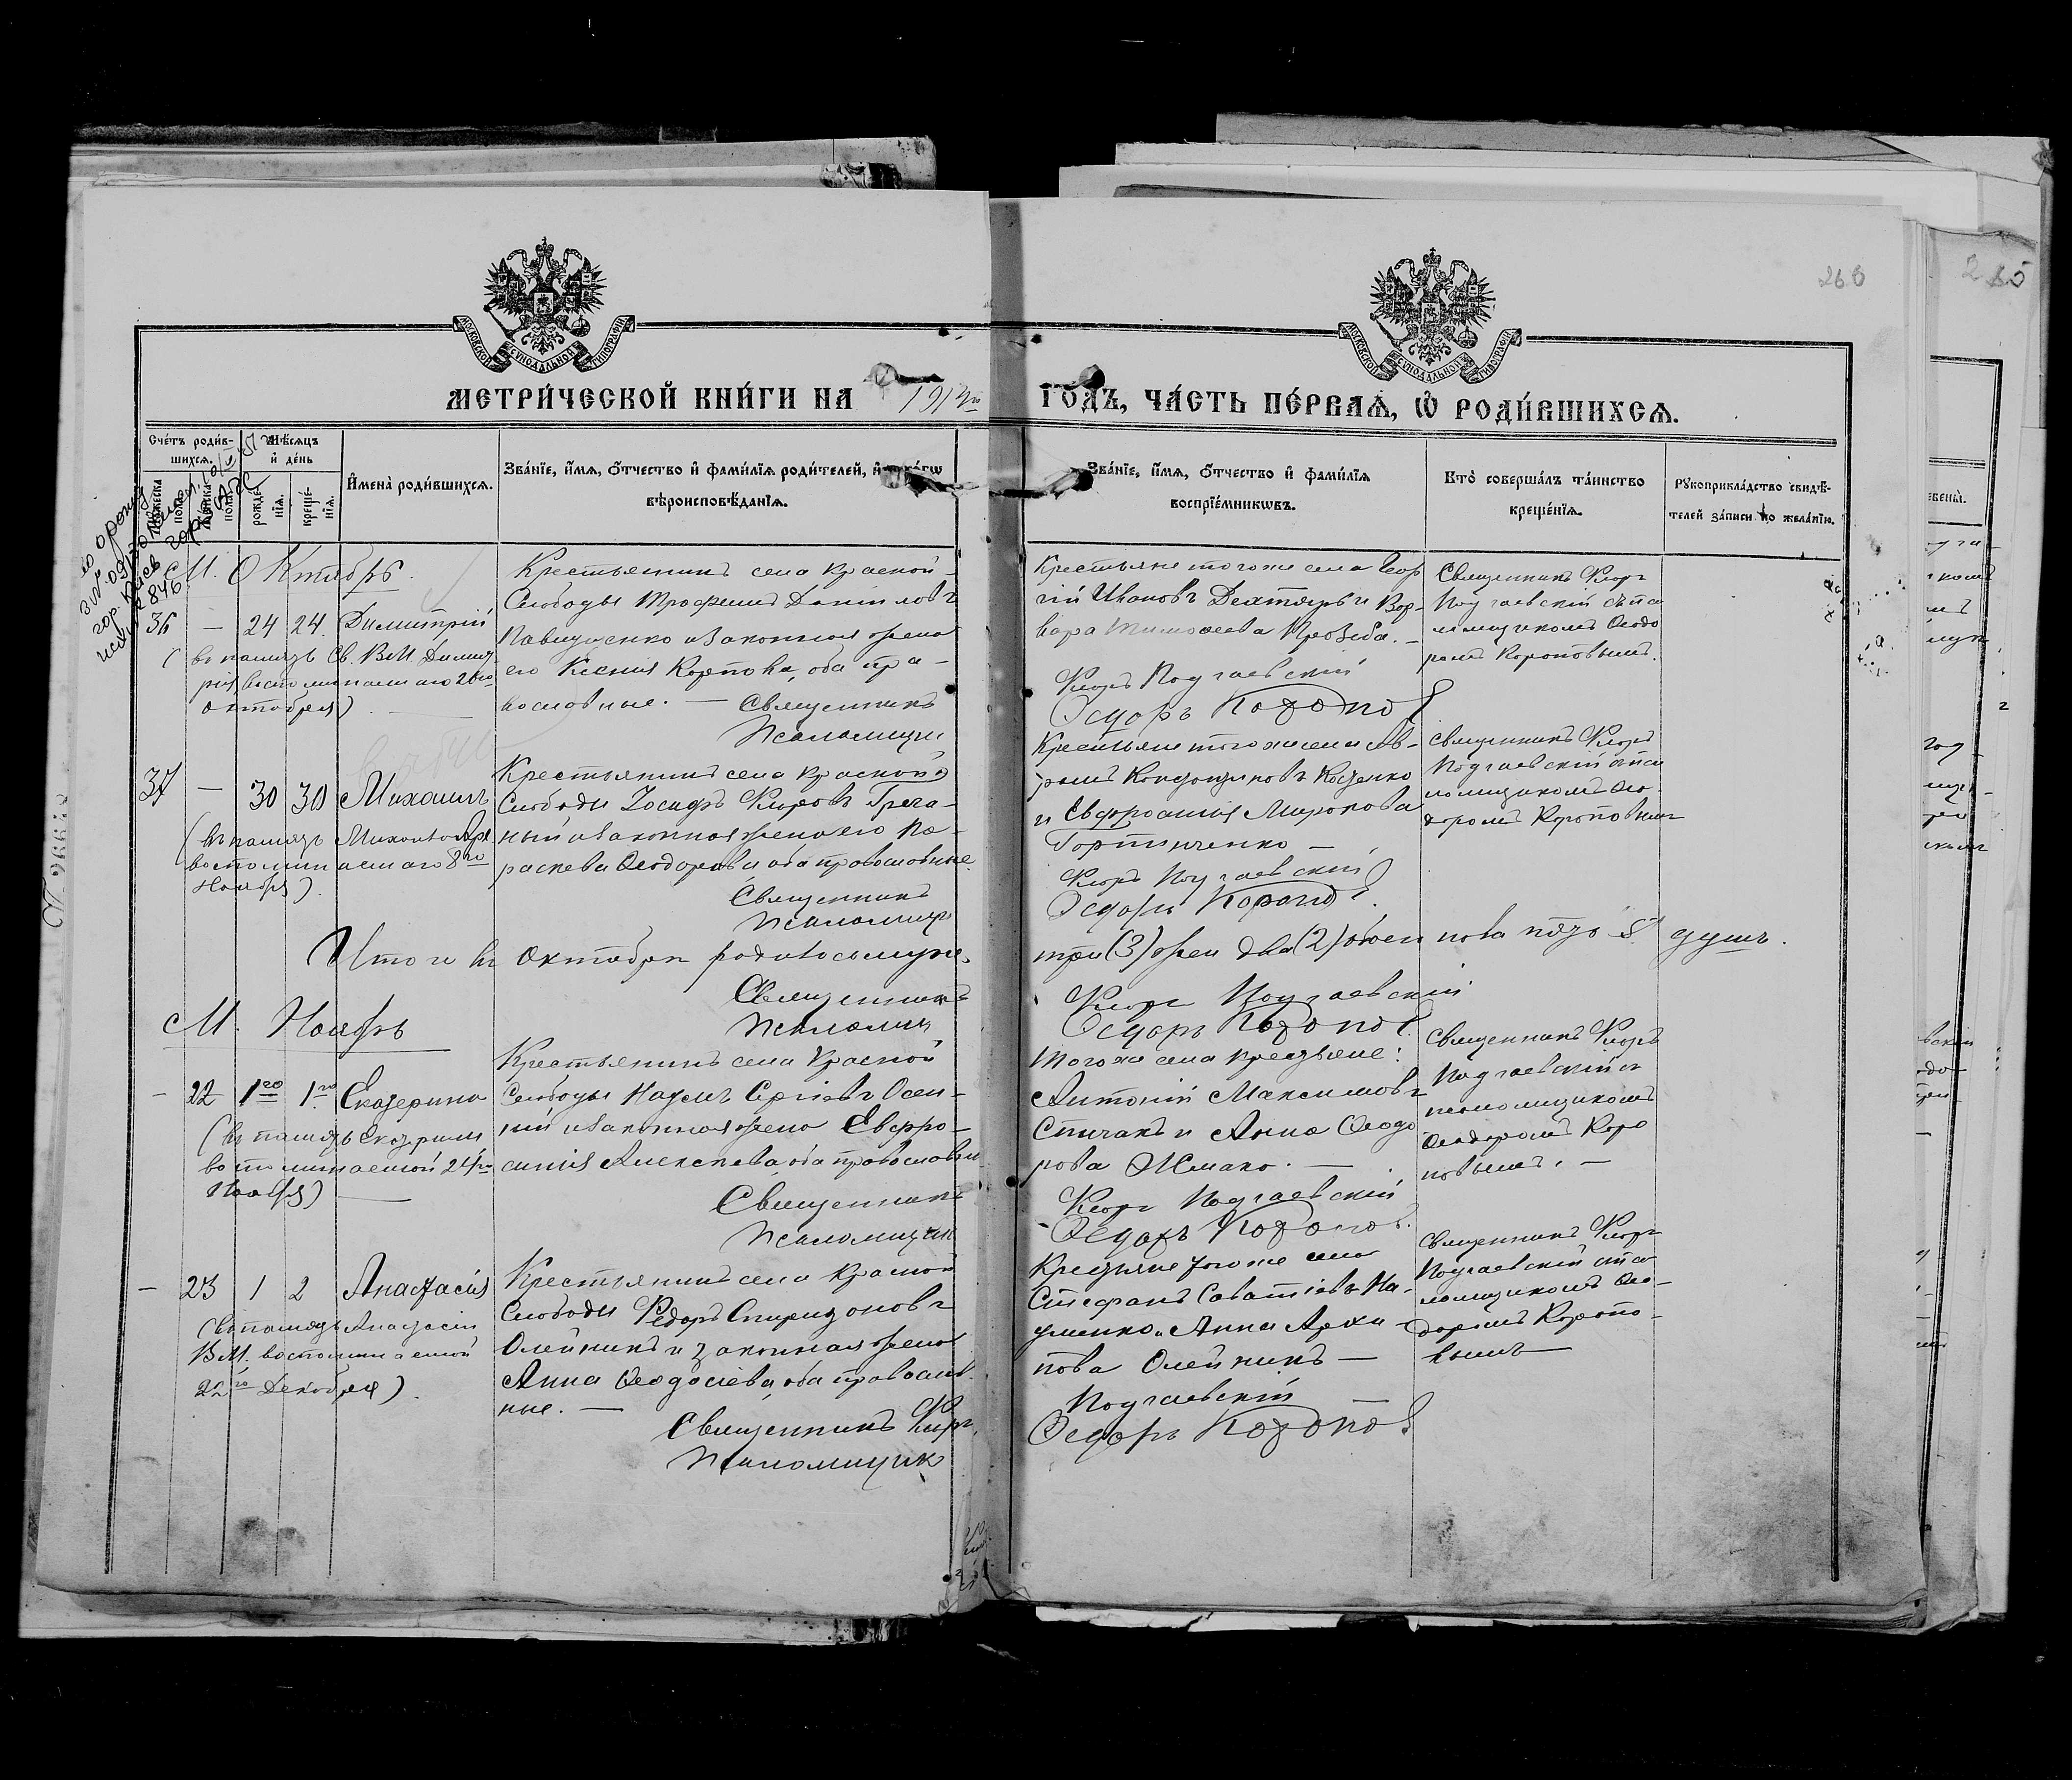 260
МОСКОВСКОЙ СѴНОДАЛЬНОЙ ТИПОГРАФІИ
МОСКОВСКОЙ СѴНОДАЛЬНОЙ ТИПОГРАФІИ
МЕТРИ́ЧЕСКОЙ КНИ́ГИ НА
ГОДЪ, ЧА́СТЬ ПЕ́РВАѦ, Ѽ РОДИ́ВШИХСѦ.
Сче́тъ роди́в-
шихся.
Мѣ́сяцъ
и҆ де́нь
рожде́-
нїя.
креще́-
нїя.
И҆мена̀ роди́вшихсѧ.
Зва́нїе, и҆́мѧ, ѻ҆́тчество и҆ фами́лїѧ роди́телей, и҆
вѣроисповѣ́данїѧ.
Зва́нїе, и҆́мѧ, ѻ҆́тчество и҆ фами́лїѧ
воспрїе́мникѡвъ.
Кто̀ соверша́лъ та́инство
креще́нїѧ.
Рꙋкоприкла́дство свидѣ́-
телей за́писи по жела́нїю.
М. Октябрь.
36 — 24 24. Димитрій
(въ память Св. ВМ. Димит-
рія воспоминаемаго 26го
октября)
Крестьянинъ села Красной
Слободы Трофимъ Даниловъ
Павлущенко и законная жена
его Ксенія Карпова, оба пра-
вославные. — Священникъ
Псаломщик
Крестьяне того же села Геор
гій Ивановъ Дехтяръ и Вар-
вара Тимоѳеева Прозеба. —
Киръ Подгаевскій
Ѳедоръ Коропов
Священникъ Киръ
Подгаевскій съ пса
ломщикомъ Ѳеодо
ромъ Короповымъ.
37 — 30 30 Михаилъ
(въ память Михаила Арх
воспоминаемаго 8го
Ноября).
Крестьянинъ села Красной
Слободы Іосифъ Кировъ Греча-
ный и законная жена его Па-
раскева Ѳеодорова оба православные.
Священникъ
Псаломщик
Крестьяне того же села Ав-
рамъ Кондратиковъ Коценко
и Евфросинія Миронова
Гортинченко —
Киръ Подгаевскій
Ѳедоръ Коропов.
Священникъ Киръ
Подгаевскій съ пса
ломщикомъ Ѳео-
доромъ Короповымъ
Итого въ октябрѣ родилось муж.
три (3) жен два (2) обоего пола пять 5 душъ.
Священникъ
Псаломщик
Киръ Подгаевскій
Ѳедоръ Коропов.
М. Ноябрь
— 22 1го 1го Екатерина
(въ память Екатерины
воспоминаемой 24го
Ноября) —
Крестьянинъ села Красной
Слободы Наумъ Сергіевъ Осен-
ній и законная жена Евфро-
синія Алексеева, оба православн
Священникъ
Псаломщик
Того же села крестьяне:
Антоній Максимовъ
Спичакъ и Анна Ѳеодо
рова Жмако. —
Киръ Подгаевскій
Ѳедоръ Коропов.
Священникъ Киръ
Подгаевскій съ
псаломщикомъ
Ѳеодоромъ Коро
повымъ. —
— 23 1 2 Анастасія
(въ память Анастасіи
ВМ. воспоминаемой
22го Декабря).
Крестьянинъ села Красной
Слободы Ѳедоръ Спиридоновъ
Олейникъ и законная жена
Анна Ѳеодосіева, оба правосла-
вные. —
Священникъ Киръ
Псаломщик
Крестьяне того же села
Стефанъ Саватіевъ На-
уменко и Анна Архи-
пова Олейникъ —
Подгаевскій —
Ѳедоръ Коропов
Священникъ Киръ
Подгаевскій съ пса
ломщикомъ Ѳео-
доромъ Коропо-
вымъ —